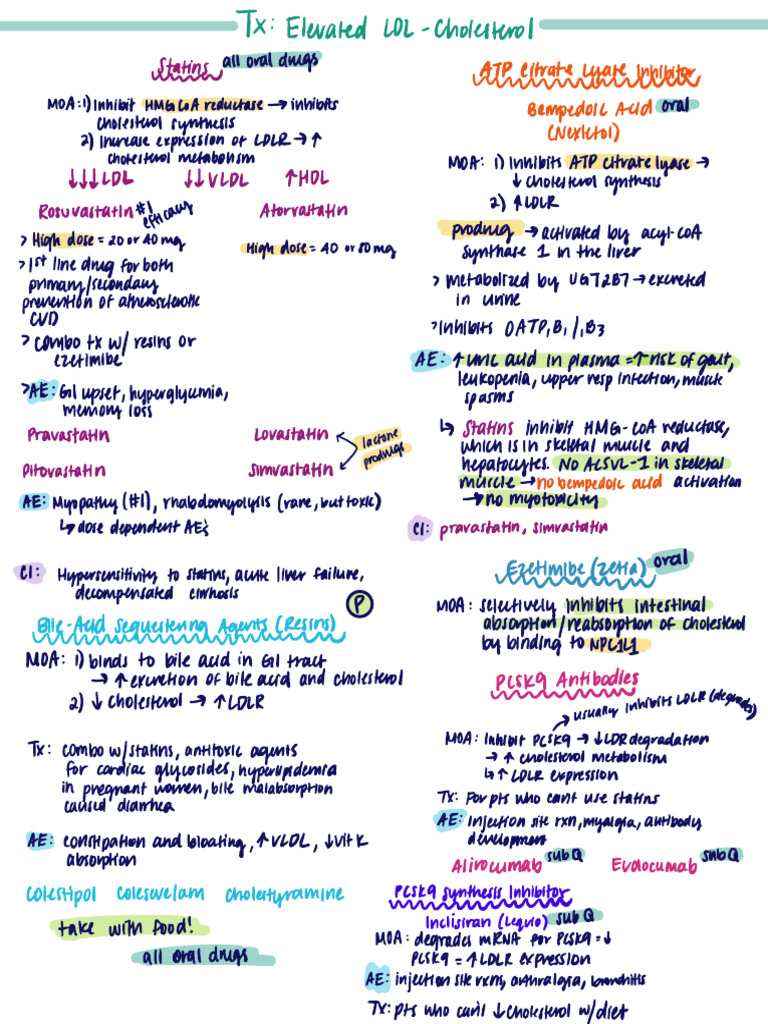 Tx: Elevated LDL-Cholesterol
Statins all oral drugs
MOA: 1) Inhibit HMG-CoA reductase → inhibits
cholesterol synthesis
2) Increase expression of LDLR → ↑
cholesterol metabolism
↓↓↓ LDL ↓↓ VLDL ↑ HDL
Rosuvastatin #1 efficacy Atorvastatin
> High dose = 20 or 40 mg
High dose = 40 or 80 mg
> 1st line drug for both
primary/secondary
prevention of atherosclerotic
CVD
> combo tx w/ resins or
ezetimibe
> AE: GI upset, hyperglycemia,
memory loss
Pravastatin Lovastatin
lactone
prodrugs
Pitovastatin Simvastatin
AE: Myopathy (#1), rhabdomyolysis (rare, but toxic)
↳ dose dependent AEs
CI: Hypersensitivity to statins, acute liver failure,
decompensated cirrhosis
P
Bile-Acid Sequestering Agents (Resins)
MOA: 1) binds to bile acid in GI tract
→ ↑ excretion of bile acid and cholesterol
2) ↓ cholesterol → ↑ LDLR
Tx: combo w/ statins, antitoxic agents
for cardiac glycosides, hyperlipidemia
in pregnant women, bile malabsorption
caused diarrhea
AE: constipation and bloating, ↑ VLDL, ↓ vit K
absorption
Colestipol Coleswelam Cholestyramine
take with food!
all oral drugs
ATP Citrate Lyase Inhibitor
Bempedoic Acid oral
(Nexletol)
MOA: 1) inhibits ATP citrate lyase →
↓ cholesterol synthesis
2) ↑ LDLR
prodrug → activated by acyl-CoA
synthase 1 in the liver
> metabolized by UGT2B7 → excreted
in urine
> inhibits OATP, B1/, B3
AE: ↑ uric acid in plasma = ↑ risk of gout,
leukopenia, upper resp infection, muscle
spasms
↳ Statins inhibit HMG-CoA reductase,
which is in skeletal muscle and
hepatocytes. No ACSVL-1 in skeletal
muscle → no bempedoic acid activation
→ no myotoxicity
CI: pravastatin, simvastatin
Ezetimibe (Zetia) oral
MOA: selectively inhibits intestinal
absorption/reabsorption of cholesterol
by binding to NPC1L1
PCSK9 Antibodies
usually inhibits LDLR (degrades)
MOA: Inhibit PCSK9 → ↓ LDR degradation
→ ↑ cholesterol metabolism
↳ ↑ LDLR expression
Tx: For pts who can't use statins
AE: injection site rxn, myalgia, antibody
development
Alirocumab subQ Evolocumab subQ
PCSK9 Synthesis Inhibitor
Inclisiran (Leqvio) subQ
MOA: degrades mRNA for PCSK9 = ↓
PCSK9 = ↑ LDLR expression
AE: injection site rxns, arthralgia, bronchitis
Tx: pts who can't ↓ cholesterol w/ diet